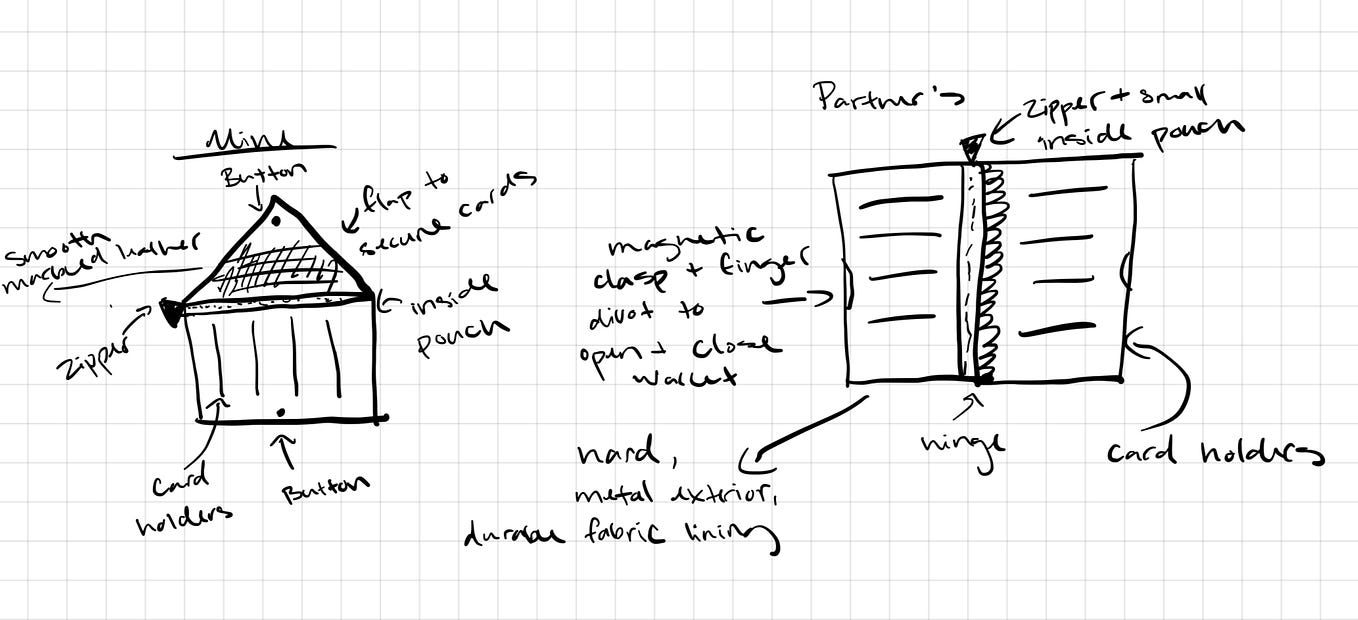 Mine
Button
flap to
secure cards
smooth
leather
Zipper
inside
pouch
Card
holders
Button
Partner's
Zipper + small
inside pouch
magnetic
clasp + finger
divot to
open + close
wallet
hard,
metal exterior,
durable fabric lining
hinge
card holders